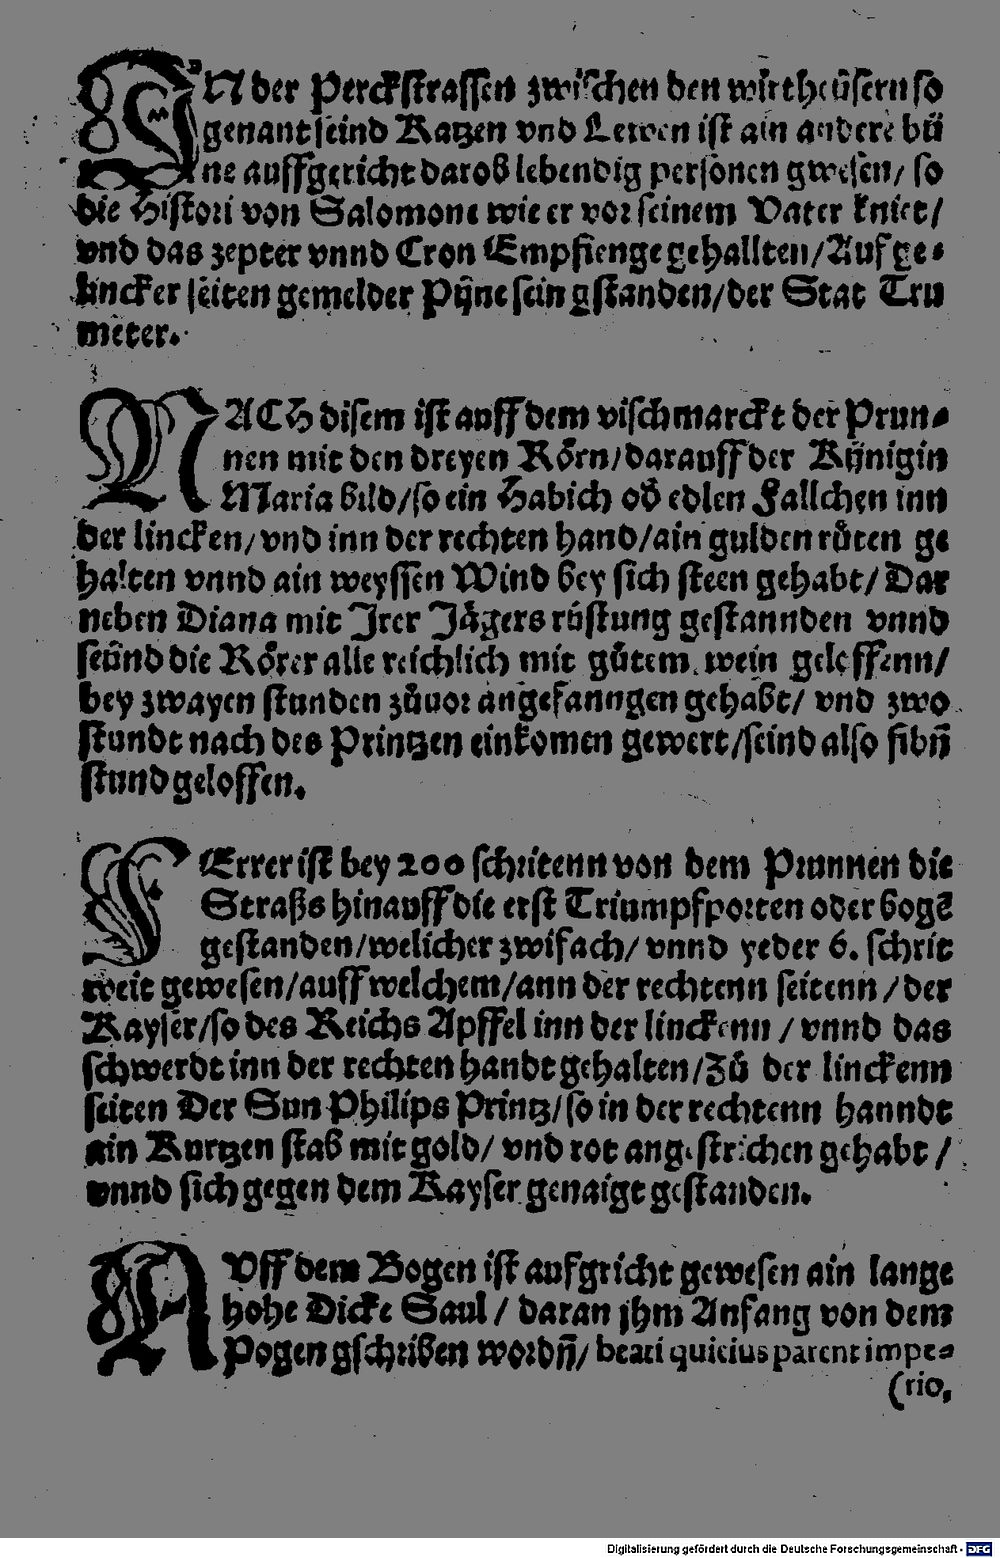 IN der Perckstrassen zwischen den wirtheüsern so
genant seind Katzen vnd Lewen ist ain andere bü
ne auffgericht darob lebendig personen gwesen/ so
die Histori von Salomone wie er vor seinem Vater kniet/
vnd das zepter vnnd Cron Empfienge gehallten/Auf ge-
lincker seiten gemelder Pÿne sein gstanden/der Stat Tru
meter.
NACH disem ist auff dem vischmarckt der Prun-
nen mit den dreyen Rörn/darauff der Kÿnigin
Maria bild/so ein Habich od̄ edlen Fallchen inn
der lincken/vnd inn der rechten hand/ain gulden růten ge
halten vnnd ain weyssen Wind bey sich steen gehabt/Dar
neben Diana mit Irer Jägers rüstung gestannden vnnd
seünd die Rörer alle reichlich mit gůtem wein geloffenn/
bey zwayen stunden zůuor angefanngen gehabt/ vnd zwo
stundt nach des Printzen einkomen gewert/seind also sibn̄
stund geloffen.
FErrer ist bey 200 schritenn von dem Prunnen die
Straß hinauff die erst Triumpfporten oder bogē
gestanden/welicher zwifach/ vnnd yeder 6. schrit
weit gewesen/auff welchem/ann der rechtenn seitenn /der
Kayser/so des Reichs Apffel inn der linckenn / vnnd das
schwerdt inn der rechten handt gehalten/Zů der linckenn
seiten Der Sun Philips Printz/so in der rechtenn hanndt
ain Kurtzen stab mit gold/ vnd rot angestrichen gehabt /
vnnd sich gegen dem Kayser genaigt gestanden.
AVff dem Bogen ist aufgricht gewesen ain lange
hohe Dicke Saul / daran jhm Anfang von dem
Pogen gschriben wordn̄/ beati quicius parent impe-
(rio,
Digitalisierung gefördert durch die Deutsche Forschungsgemeinschaft - DFG